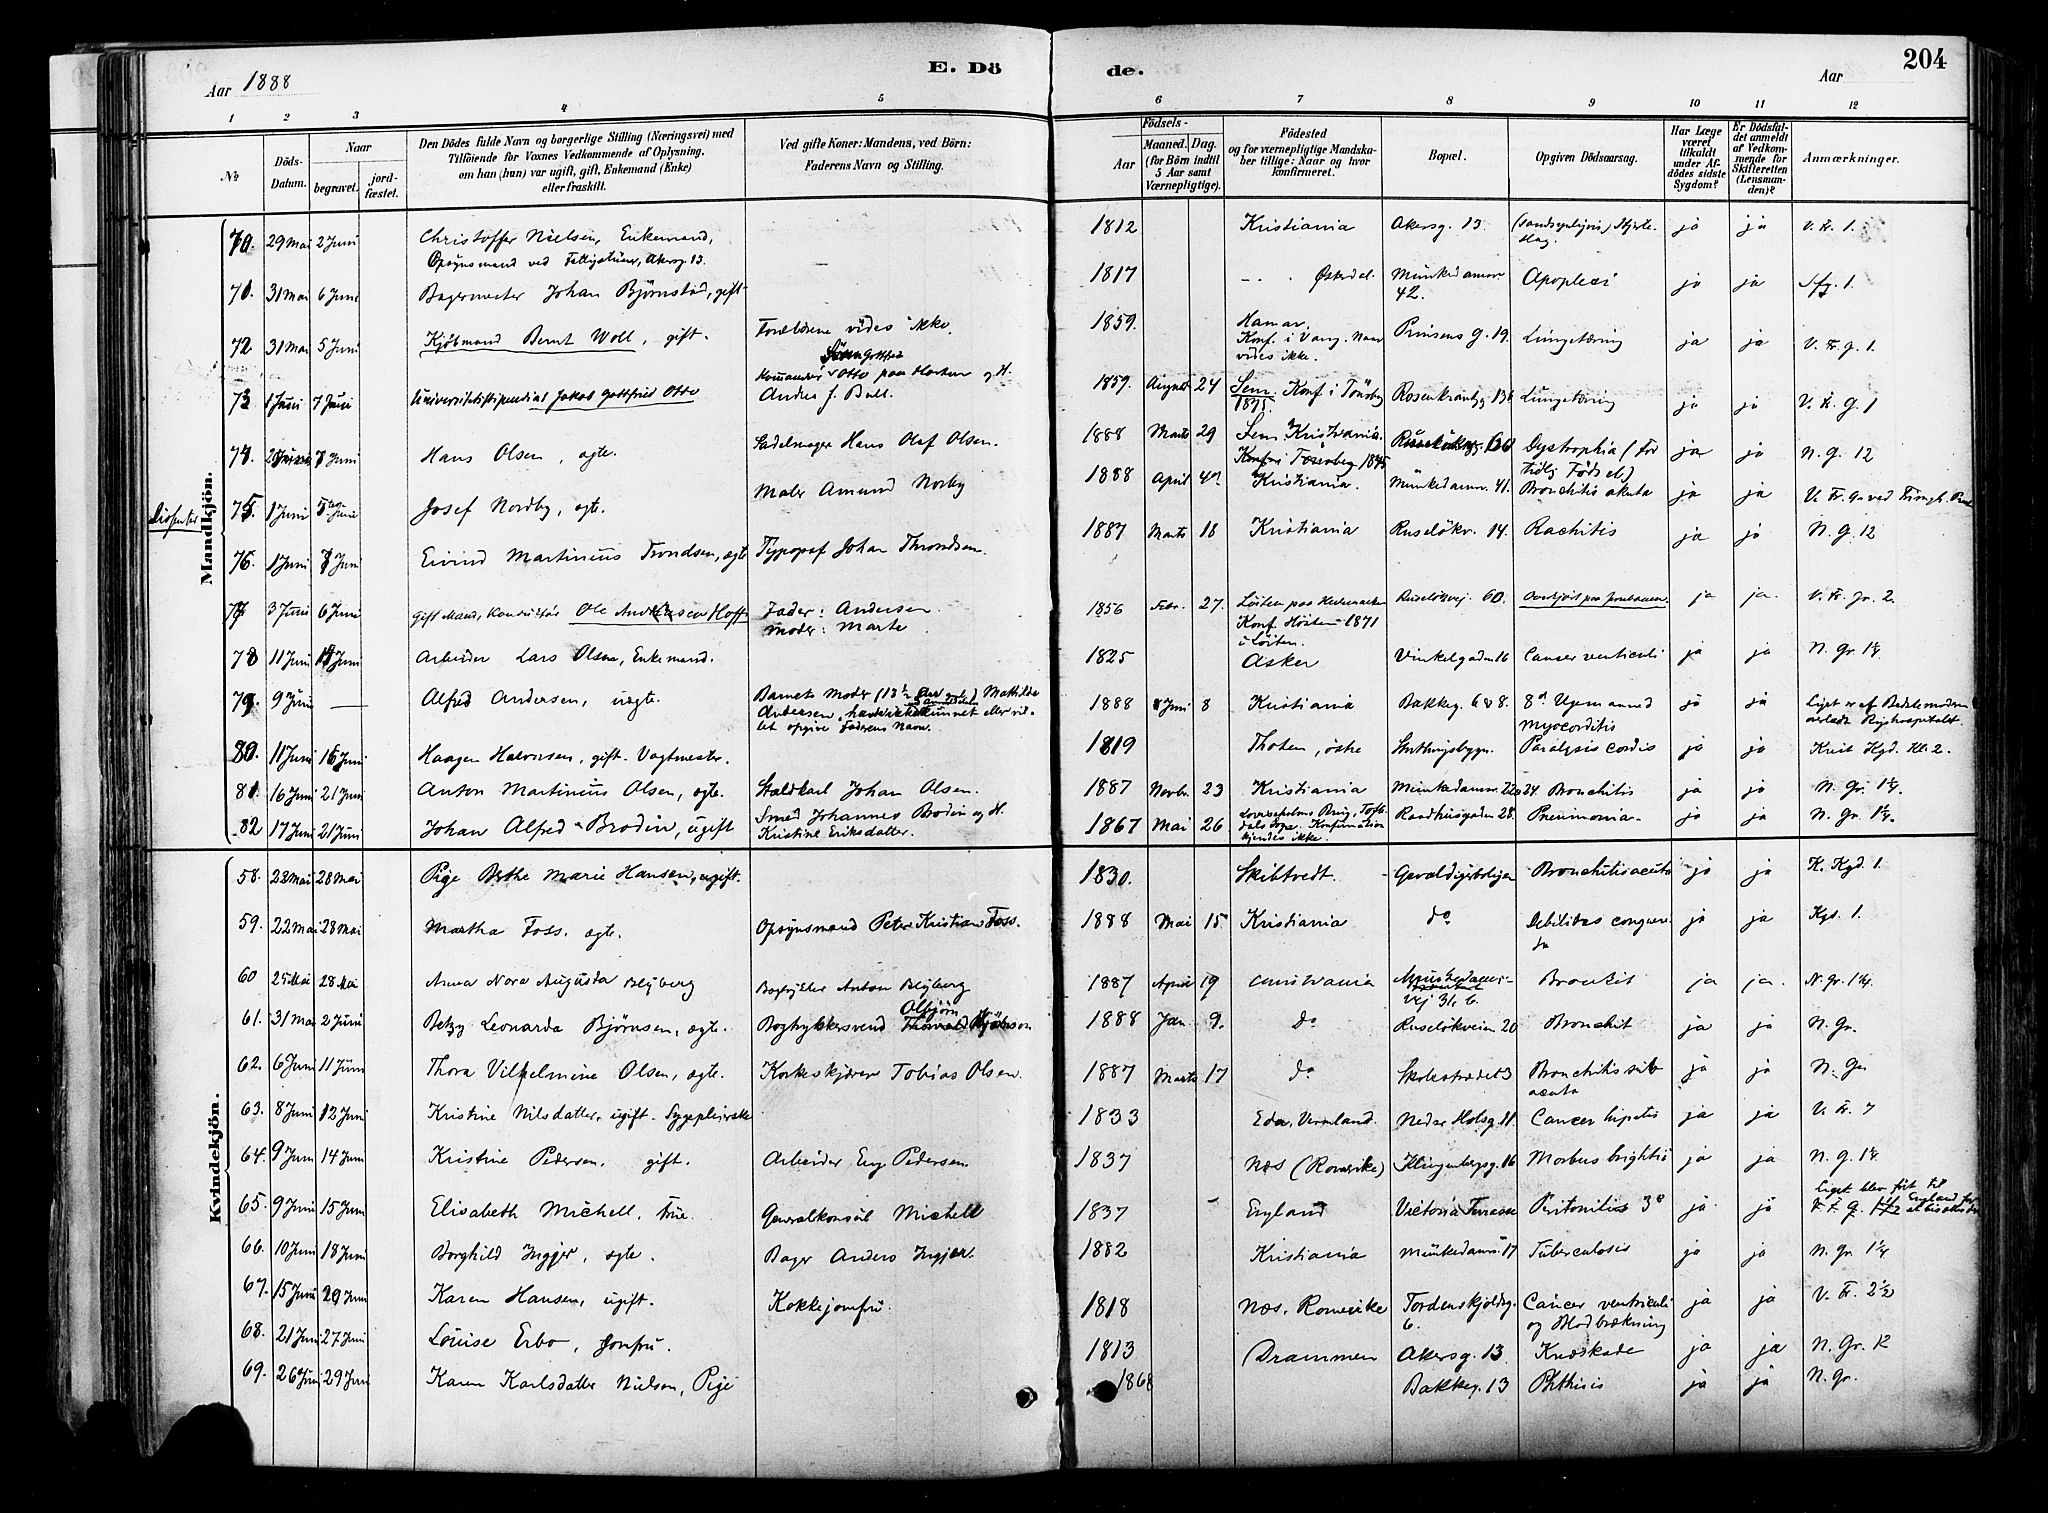 Aar 1888
E. Dö
de.
Aar
204
1 2 3 4 5 6 7 8 9 10 11 12
No
Döds-Datum.
Naar
begravet.
jord-fæstet.
Den Dödes fulde Navn og borgerlige Stilling (Næringsvei) med
Tilföiende for Voxnes Vedkommende af Oplysning,
om han (hun) var ugift, gift, Enkemand (Enke)
eller fraskilt.
Ved gifte Koner: Mandens, ved Börn:
Faderens Navn og Stilling.
Födsels-
Aar
Maaned. Dag.
(for Börn indtil
5 Aar samt
Værnepligtige).
Födested
og for værnepligtige Mandska-
ber tillige: Naar og hvor
konfirmeret.
Bopæl.
Opgiven Dödsaarsag.
Har Læge
været
tilkaldt
under Af-
dödes sidste
Sygdom?
Er Dödsfal-
det anmeldt
af Vedkom-
mende for
Skifteretten
(Lensman-
den)?
Anmærkninger.
Mandkjön.
70. 29 Mai 2 Juni Christoffer Nielsen, Enkemand, 1812 Kristiania Akersg. 13. Hjerte- ja ja V. Fr. 1.
Opsynsmand ved Akersg. 13. slag.
71. 31 Mai 6 Juni Bagermester Johan Björnstad, gift 1817 Munkedamsv. 42. Apoplexi ja ja 1.
72 31 Mai 5 Juni Kjöbmand Bernt Woll, gift. Forældrene vides ikke. 1859. Hamar. Konf. i Vang. Naar vides ikke. Prinsens g. 19. Lungetæring ja ja V. Fr. g. 1.
73 1 Juni 7 Juni Universitetsstipendiat Jakob Gottfried Otto Otto paa Horten og H. Andrea f. Bull. 1859. August 24 Sem. Konf. i Tönsberg 1875. Rosenkrantzg. Lungetæring ja ja V. Fr. g. 1
74. Juni Hans Olsen, ægte. Sadelmager Hans Olaf Olsen. 1888 Marts 29 Kristiania. Dystrophia (For tidlig Födsel) ja ja N. g. 12
Dissenter 75. 1 Juni 5 Juni Josef Nordby, ægte. Maler Amund Norby 1888 April Kristiania. Munkedamsv. 41. Bronchitis akuta ja ja
76. 1 Juni Juni Eivind Martinius Trondsen, ægte Typograf Johan Throndsen. 1887 Marts 18 Kristiania Ruselökv. 14. Rachitis ja ja N. g. 12
77 3 Juni 6 Juni Gift Mand, Konduktör Ole Andersen Hoff. Fader: Andersen. Moder: Marte 1856 Febr. 27. Löiten paa Hedemarken Konf. Hösten 1871 i Löiten. Ruselökvej. 60. Overkjört paa Jernbanen. ja ja. V. Fr. gr. 2.
78 11 Juni Juni Arbeider Lars Olsen, Enkemand. 1825 Asker Vinkelgaden 16 Cancer ventriculi ja ja N. gr. 1¼
79. 9 Juni — Alfred Andersen, uægte. Barnets Moder (13½ Aar gml.) Mathilde Andersen, har ikke kunnet eller vil-
let opgive Faderens Navn. 1888 Juni 8 Kristiania Bakkeg. 6 & 8. 8de Ugemaaned myocorditis ja ja Liget er af Bedstemoderen Righospitalet.
80. 11 Juni 16 Juni Haagen Halvorsen, gift. Vagtmester. 1819 Thoten, östre Stiftningsbygn. Paralysis cordis ja ja Krist Kgd. Kl. 2.
81. 16 Juni 21 Juni Anton Martinius Olsen, ægte. Staldkarl Johan Olsen. 1887 Novbr. 23 Kristiania Munkedamsv. Bronchitis ja ja N. Gr. 1¼
82 17 Juni 21 Juni Johan Alfred Brodin, ugift Smed Johannes Brodin og H. Kristine Eriksdatter. 1867 Mai 26 Konfirmation kjendes ikke. Raadhusgaden 28. Pneumonia ja ja N. Gr. 1¼.
Kvindekjön.
58. 22 Mai 28 Mai Pige Berthe Marie Hansen, ugift. 1830. Skibtvedt. Bronchitis acuta ja ja K. Kgd 1.
59. 22 Mai 28 Mai Martha Foss. ægte. Opsynsmand Peter Kristian Foss. 1888 Mai 15 Kristiania do Debilitas ja ja Kgd. 1.
60 25 Mai 28 Mai Anna Nora Augusta Blyberg Bogtrykker Anton Blyberg 1887 April 19 Christiania Munkedams-
Vej 31, b. Bronkit ja ja. N. Gr. 1¼.
61. 31 Mai 2 Juni Betzy Leonarda Björnsen, ægte. Bogtrykkersvend 1888 Jan. 9. do Ruselökveien 20 Bronchit ja ja N. Gr.
62. 6 Juni 11 Juni Thora Vilhelmine Olsen, ægte. Korkeskjærer Tobias Olsen. 1887 Marts 17 do Skolestrædet 3 Bronchitis sub acuta ja ja N. Gr
63. 8 Juni 12 Juni Kristine Nilsdatter, ugift. Sygepleierske 1833 Eda, Vermland. Nedre Holsg. 11. Cancer hepatis ja ja V. Fr.
64. 9 Juni 14 Juni Kristine Pedersen, gift. Arbeider Pedersen 1837 Næs (Romerike) Klingenbergsg. 16 Morbus brightii ja ja N. g. 1¼
65. 9 Juni 15 Juni Elisabeth Michell, Frue. Generalkonsul Michell 1837 England Victoria Terrasse Peritonitis ja ja Liget blev fört til England
66. 10 Juni 18 Juni Borghild Ingjer, ægte. Bager Anders Ingjer. 1882 Kristiania Munkedamsv. 17 Tuberculosis ja ja N. gr. 1¼
67. 15 Juni 20 Juni Karen Hansen, ugift. Kokkejomfru 1818 Næs, Romerike Tordenskjoldsg. 6. Cancer ventriculi og Blodbrækning ja ja V. Fr. 2½
68. 21 Juni 27 Juni Louise Erbo, Jomfru. 1813 Drammen Akersg. 13. Knæskade ja ja N. Gr. 12
69. 26 Juni 29 Juni Karen Karlsdatter Nielsen, Pige 1868 Bakkeg. 13 Phthisis ja ja N. Gr.